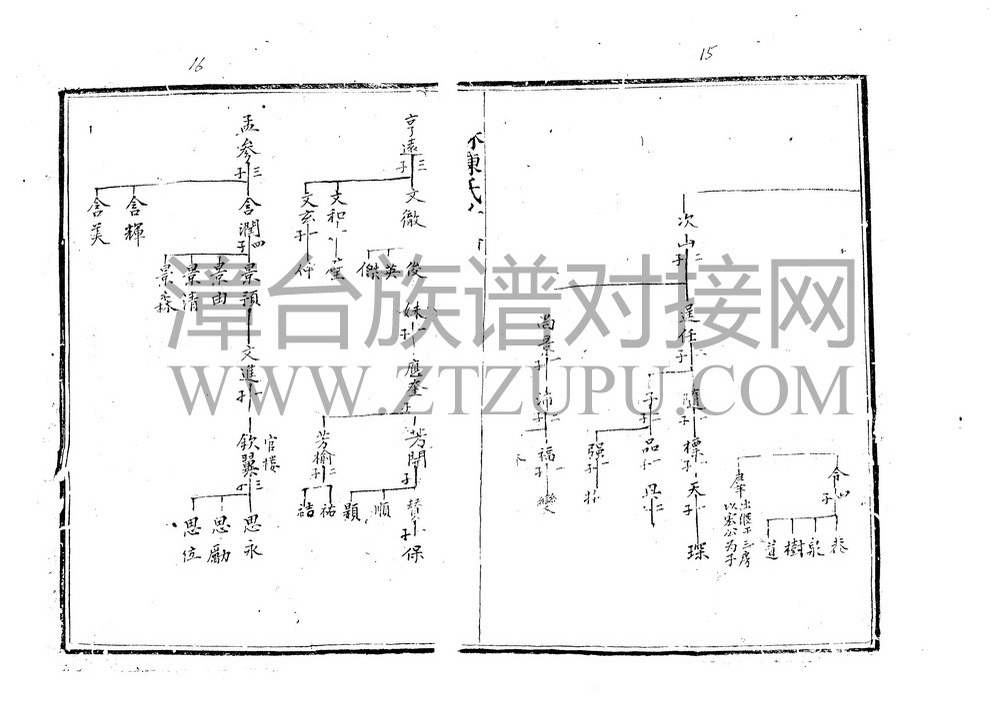 15
次山二子
遲任二子
隨一子
標一子
天一子
琛
子一子
品一子
强一子
尚景一子
沛二子
福一子
變
令四子
恭
泉
樹
道
出繼平三房
以宏公為子
陳氏
16
亨遠三子
文徹
文和一子
文玄一子
仟
俊
英
傑
妹一子
應奎二子
芳開三子
芳榆二子
贊一子
順
顯
祐
誥
保
孟參三子
含潤四子
含輝
含美
景預
景由
景清
景森
文進一子
官樓
欽翼三子
思永
思勵
思位
漳台族谱对接网
WWW.ZTZUPU.COM